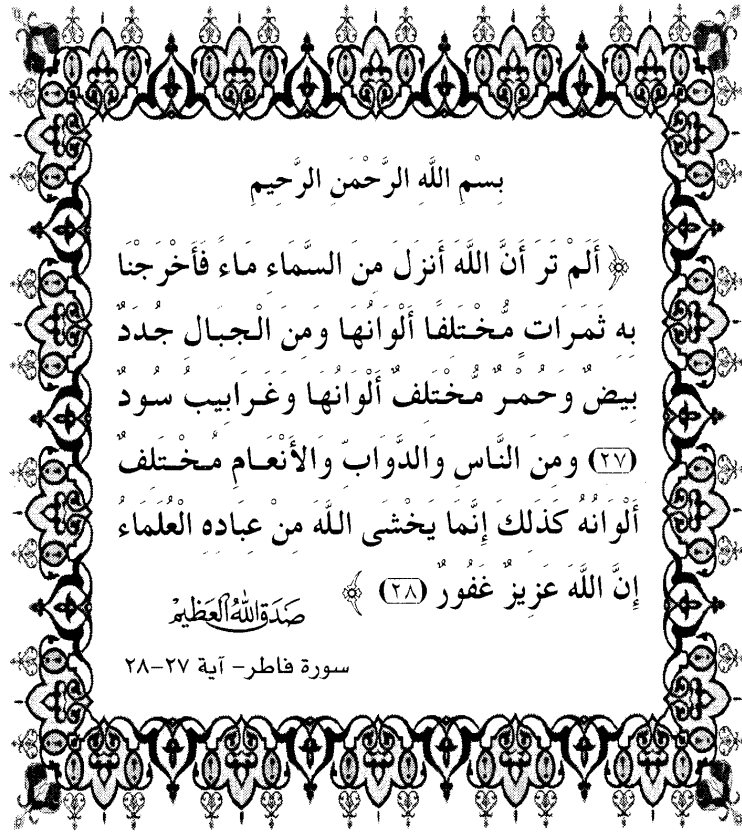 بِسْمِ اللَّهِ الرَّحْمَنِ الرَّحِيمِ
﴿ أَلَمْ تَرَ أَنَّ اللَّهَ أَنزَلَ مِنَ السَّمَاءِ مَاءً فَأَخْرَجْنَا
بِهِ ثَمَرَاتٍ مُّخْتَلِفًا أَلْوَانُهَا وَمِنَ الْجِبَالِ جُدَدٌ
بِيضٌ وَحُمْرٌ مُّخْتَلِفٌ أَلْوَانُهَا وَغَرَابِيبُ سُودٌ
(٢٧) وَمِنَ النَّاسِ وَالدَّوَابِّ وَالأَنْعَامِ مُخْتَلِفٌ
أَلْوَانُهُ كَذَلِكَ إِنَّمَا يَخْشَى اللَّهَ مِنْ عِبَادِهِ الْعُلَمَاءُ
إِنَّ اللَّهَ عَزِيزٌ غَفُورٌ (٢٨) ﴾
صَدَقَ اللهُ العَظِيمْ
سورة فاطر– آية ٢٧–٢٨